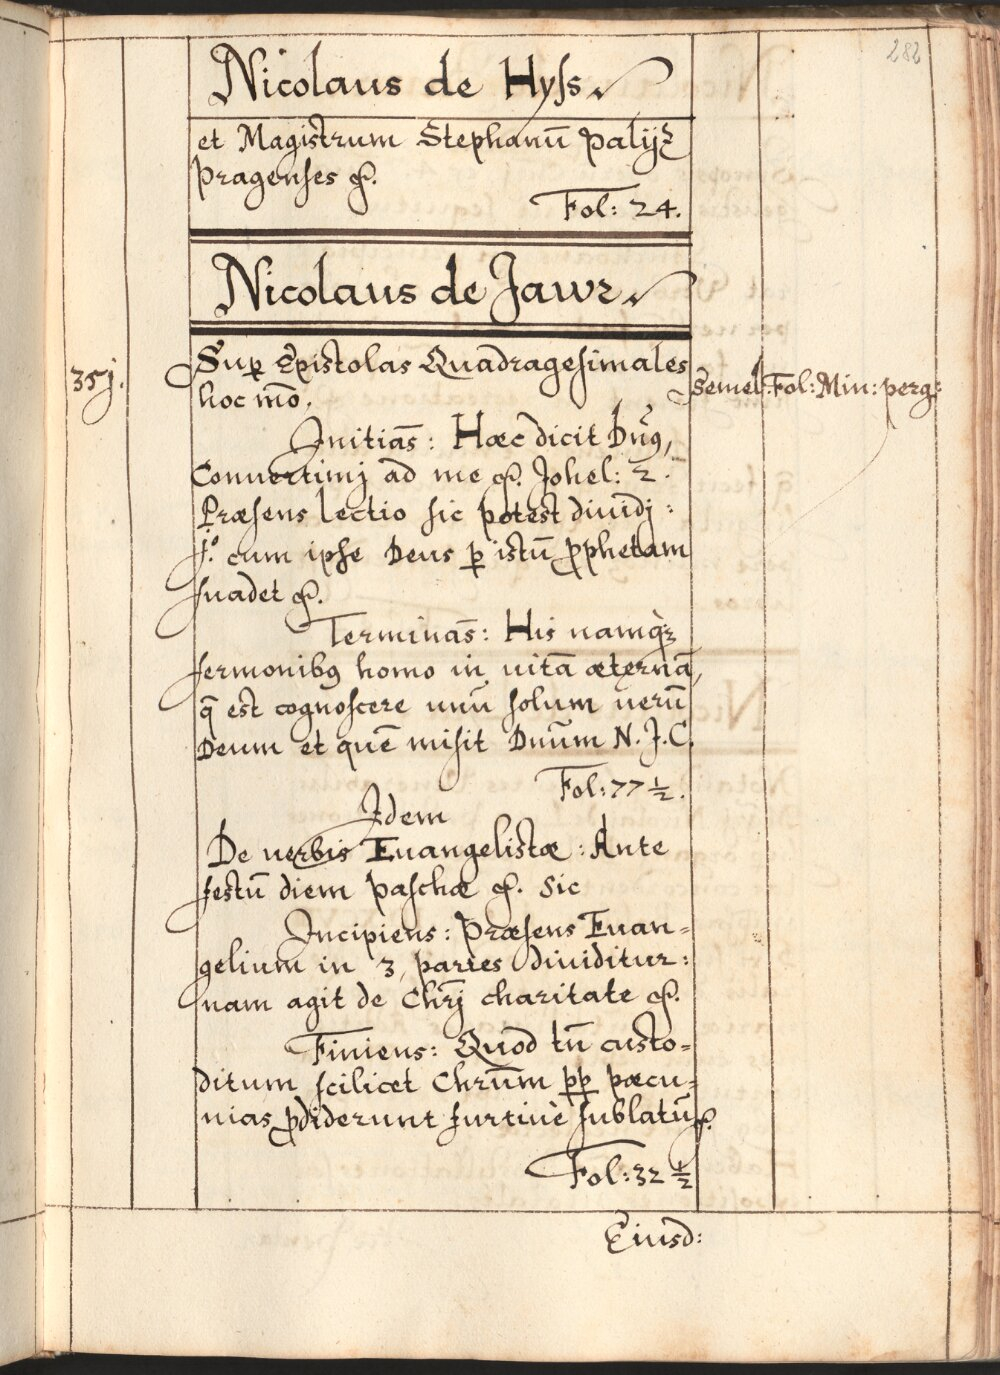 282
Nicolaus de Hyſs
et Magistrum Stephanū Palijz
Pragenses &.
Fol: 24.
Nicolaus de Jawr
35j.
Sup Epistolas Quadragesimales
Semel: Fol: Min: perg:
hoc mō.
Initiās: Hæc dicit Dn̄9,
Conuertimj ad me &. Johel: 2.
Præsens lectio sic potest diuidj:
cum ipse Deus p istū pphetam
suadet &.
Terminās: His namq₃
sermonib9 homo in uitā æternā,
q̄ est cognoscere unū solum uerū
Deum et quē misit Dnūm N. J. C.
Fol: 77 ½.
Idem
De uerbis Euangelistæ: Ante
festū diem paschæ &. sic
Incipiens: Præsens Euan=
gelium in 3, partes diuiditur:
nam agit de Chrj charitate &.
Finiens: Quod tn̄ custo=
ditum scilicet Chrūm pp pæcu=
nias pdiderunt furtiuè sublatū &.
Fol: 32 ½
Eiusd: